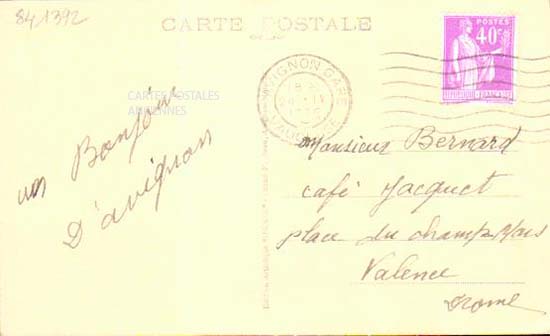 841392
CARTE POSTALE
POSTES
40c
REPUBLIQUE FRANÇAISE
AVIGNON GARE
VAUCLUSE
CARTES POSTALES
ANCIENNES
un Bonjour
D'avignon
Monsieur Bernard
café Jacquet
place du champ Mars
Valence
Drome